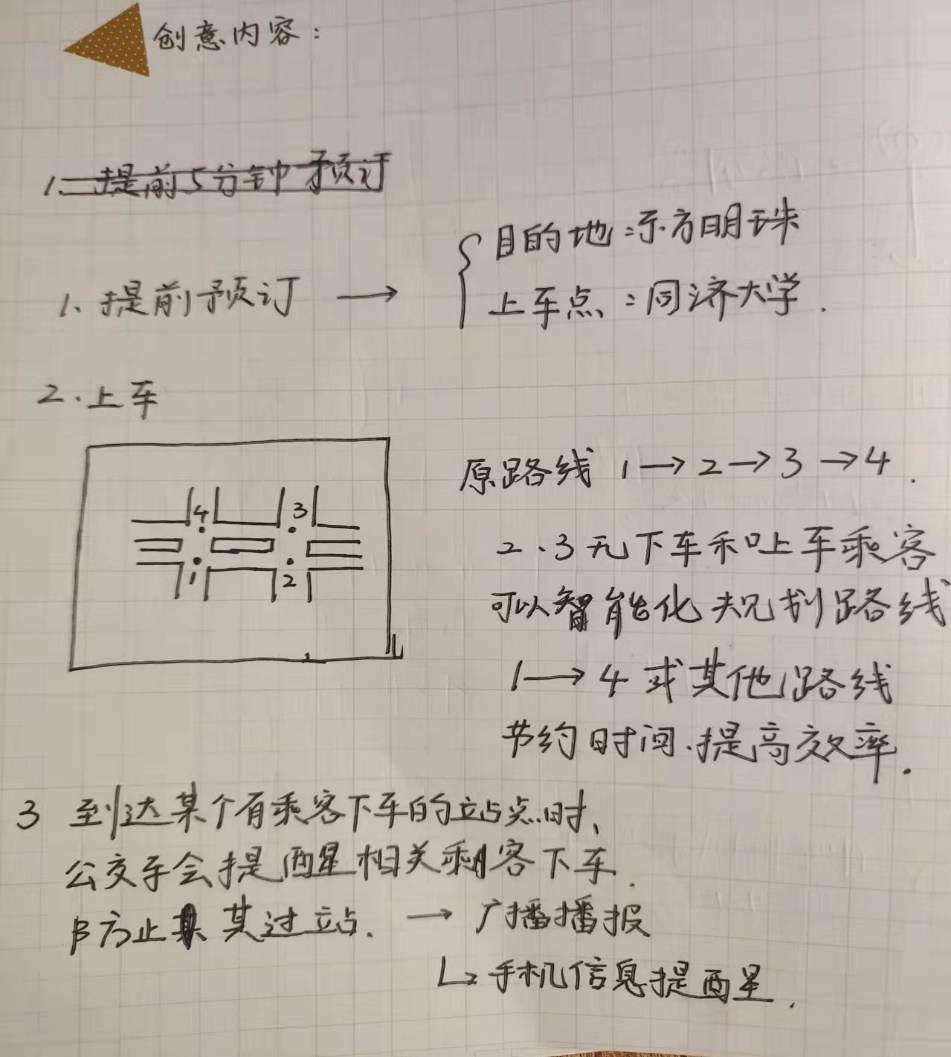 创意内容：
1. 提前5分钟预订
目的地：东方明珠
1. 提前预订 →
上车点：同济大学.
2. 上车
原路线 1→2→3→4.
4 3
1 2
2.3无下车和上车乘客
可以智能化规划路线
1→4或其他路线
节约时间.提高效率.
3 到达某个有乘客下车的站点时、
公交车会提醒相关乘客下车.
防止其过站. → 广播播报
↳ 手机信息提醒.